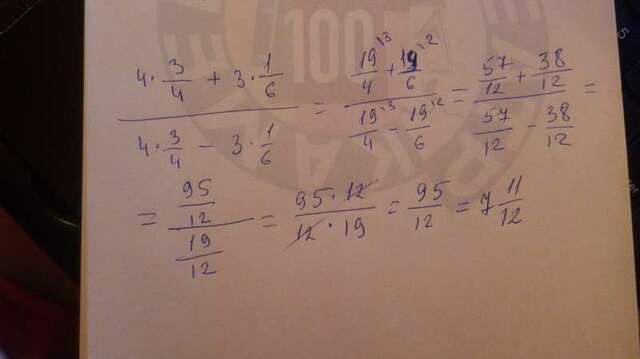 100
4·3/4 + 3·1/6 / 4·3/4 − 3·1/6 = 19\3/4 + 19\2/6 / 19\3/4 − 19\2/6 = 57/12 + 38/12 / 57/12 − 38/12 =
= 95/12 / 19/12 = 95·12/12·19 = 95/12 = 7 11/12